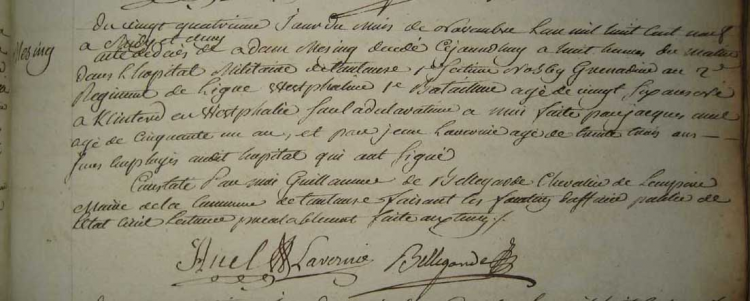 Mosing
Du vingt quatrieme jour du mois de Novembre l'an mil huit cent neuf
a Midy et demy
acte de décès de adam Mosing decedé Ejourdhuy a huit heures du matin
dans l'hopital Militaire de tantause 1e Section Grenadier au 2e
Regiment de Ligne Westphalien 1e Bataillon agé de vingt Six ans né
a en Westphalie Sur la declaration a moi faite par jacques
agé de cinquante un an, et par jean Lavernie agé de trente trois ans
tous employés audit hopital qui ont Signé
Constaté Par moi Guillaume de Bellegarde Chevalier de L'empire
Maire de la Commune de tantause faisant les fonctions d'officier public de
l'état civil Lecture prealablement faite
Huel Lavernie Bellegarde